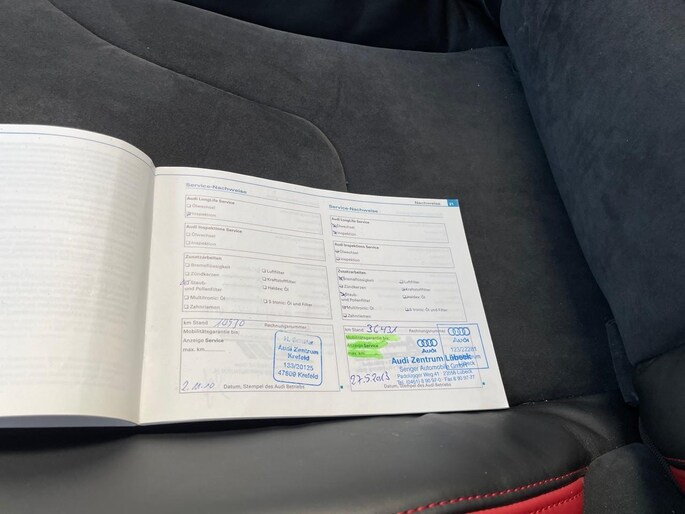 Service-Nachweise
Audi LongLife Service
Ölwechsel
Inspektion
Audi Inspektions Service
Ölwechsel
Inspektion
Zusatzarbeiten
Bremsflüssigkeit
Luftfilter
Zündkerzen
Kraftstofffilter
Staub-
und Pollenfilter
Haldex Öl
Multitronic Öl
S tronic Öl und Filter
Zahnriemen
km Stand
Rechnungsnummer:
Mobilitätsgarantie bis:
Anzeige Service
max. km
Audi Zentrum
Krefeld
133/20125
47809 Krefeld
Datum, Stempel des Audi Betriebs
Nachweise
Service-Nachweise
Audi LongLife Service
Ölwechsel
Inspektion
Audi Inspektions Service
Ölwechsel
Inspektion
Zusatzarbeiten
Bremsflüssigkeit
Luftfilter
Zündkerzen
Kraftstofffilter
Staub-
und Pollenfilter
Haldex Öl
Multitronic Öl
S tronic Öl und Filter
Zahnriemen
km Stand 36431
Rechnungsnummer
Mobilitätsgarantie bis:
Anzeige Service
max. km
Audi
Audi Zentrum Lübeck
Senger Automobile GmbH
27.5.2013
Datum, Stempel des Audi Betriebs